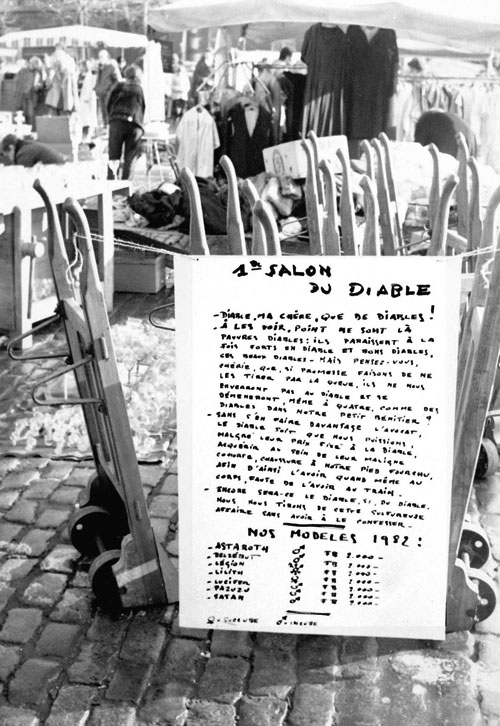 1er SALON
DU DIABLE
- DIABLE, MA CHÈRE, QUE DE DIABLES!
- À LES VOIR, POINT NE SONT LÀ
PAUVRES DIABLES: ILS PARAISSENT À LA
FOIS FORTS EN DIABLE ET BONS DIABLES,
CES BEAUX DIABLES - MAIS PENSEZ-VOUS,
CHÉRIE, QUE, SI PROMESSE FAISONS DE NE
LES TIRER PAR LA QUEUE, ILS NE NOUS
ENVERRONT PAS AU DIABLE ET SE
DÉMÈNERONT, MÊME À QUATRE, COMME DES
DIABLES DANS NOTRE PETIT BÉNITIER?
- SANS S'EN FAIRE DAVANTAGE L'AVOCAT,
LE DIABLE SOIT QUE NOUS PUISSIONS,
MALGRÉ LEUR PRIX FIXÉ À LA DIABLE,
ACQUÉRIR AU SEIN DE LEUR MALIGNE
COHORTE, CHAUSSURE À NOTRE PIED FOURCHU,
AFIN D'AINSI L'AVOIR QUAND MÊME AU
CORPS, FAUTE DE L'AVOIR AU TRAIN.
- ENCORE SERA-CE LE DIABLE, SI, DU DIABLE,
NOUS NOUS TIRONS DE CETTE SULFUREUSE
AFFAIRE SANS AVOIR À LE CONFESSER.
NOS MODÈLES 1982!
- ASTAROTH ♂ FB 2.000-
- BELZÉBUT FB
- LÉGION FB
- LILITH FB
- LUCIFER FB
- PAZUZU FB
- SATAN FB
♀ = SUCCUBE ♂ = INCUBE